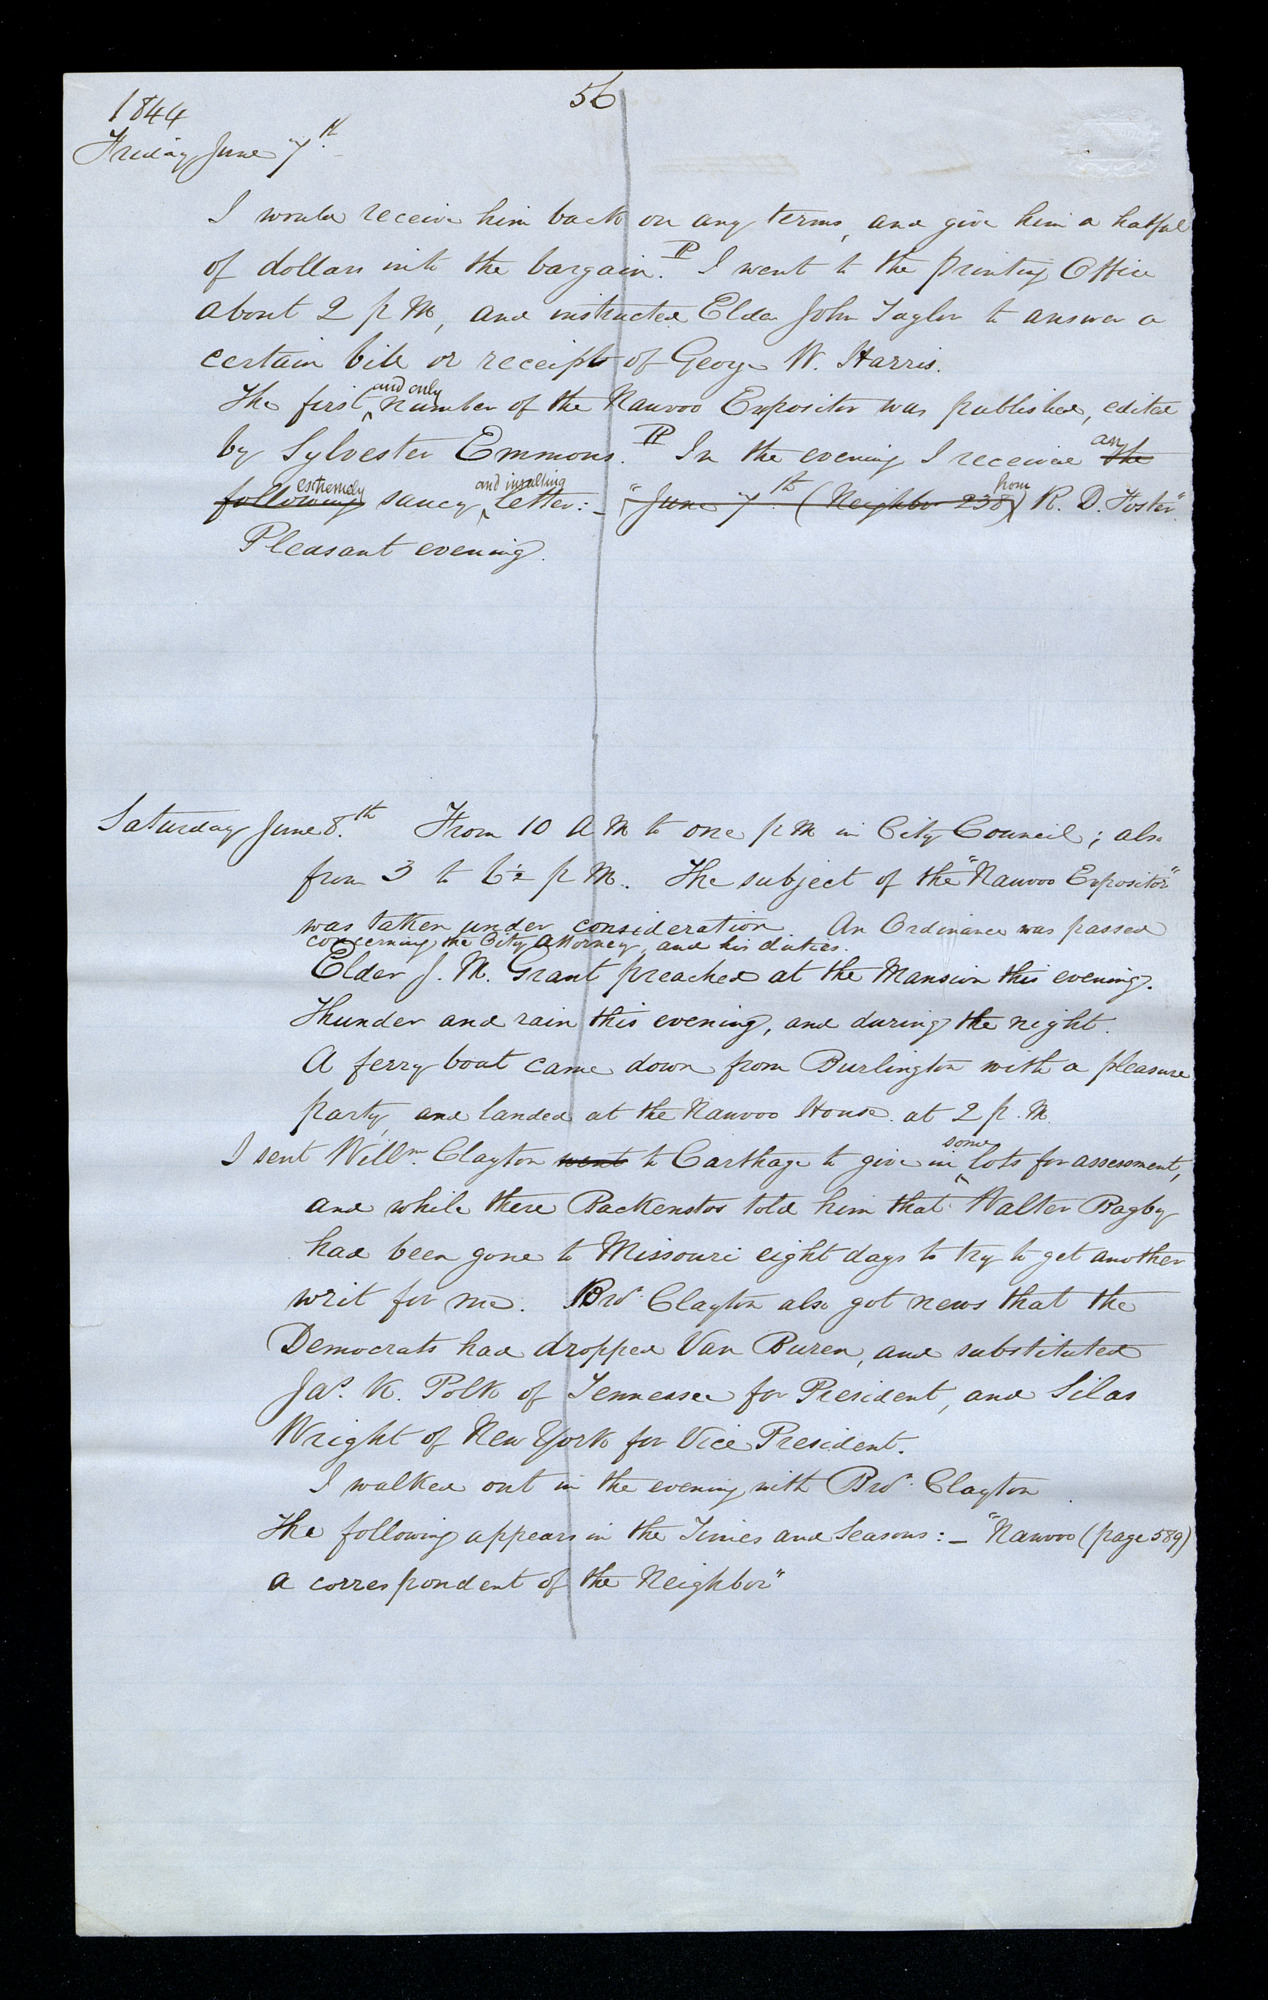 56
1844
Friday June 7th
I would receive him back on any terms, and give him a hatful
of dollars into the bargain. ¶ I went to the printing Office
about 2 p M, and instructed Elder John Taylor to answer a
certain bill or receipt of George W. Harris.
The first ^and only^ number of the Nauvoo Expositor was published, edited
by Sylvester Emmons. ¶ In the evening I received an ~~the~~
~~following~~ extremely saucy ^and insulting^ letter:— ~~"June 7th. (Neighbor 238)~~ from R. D. Foster"
Pleasant evening.
Saturday June 8.th From 10 A M to one p M in City Council; also
from 3 to 6½ p M. The subject of the "Nauvoo Expositor"
was taken under consideration. An Ordinance was passed
concerning the City Attorney, and his duties.
Elder J. M. Grant preached at the Mansion this evening.
Thunder and rain this evening, and during the night.
A ferry boat came down from Burlington with a pleasure
party, and landed at the Nauvoo House at 2 p. M.
I sent Willm. Clayton ~~went~~ to Carthage to give in ^some^ lots for assessment,
and while there Backenstos told him that Walter Bagby
had been gone to Missouri eight days to try to get another
writ for me. Bro. Clayton also got news that the
Democrats had dropped Van Buren, and substituted
Jas. K. Polk of Tennessee for President, and Silas
Wright of New York for Vice President.
I walked out in the evening with Bro. Clayton.
The following appears in the Times and Seasons:— "Nauvoo (page 589)
a correspondent of the Neighbor"